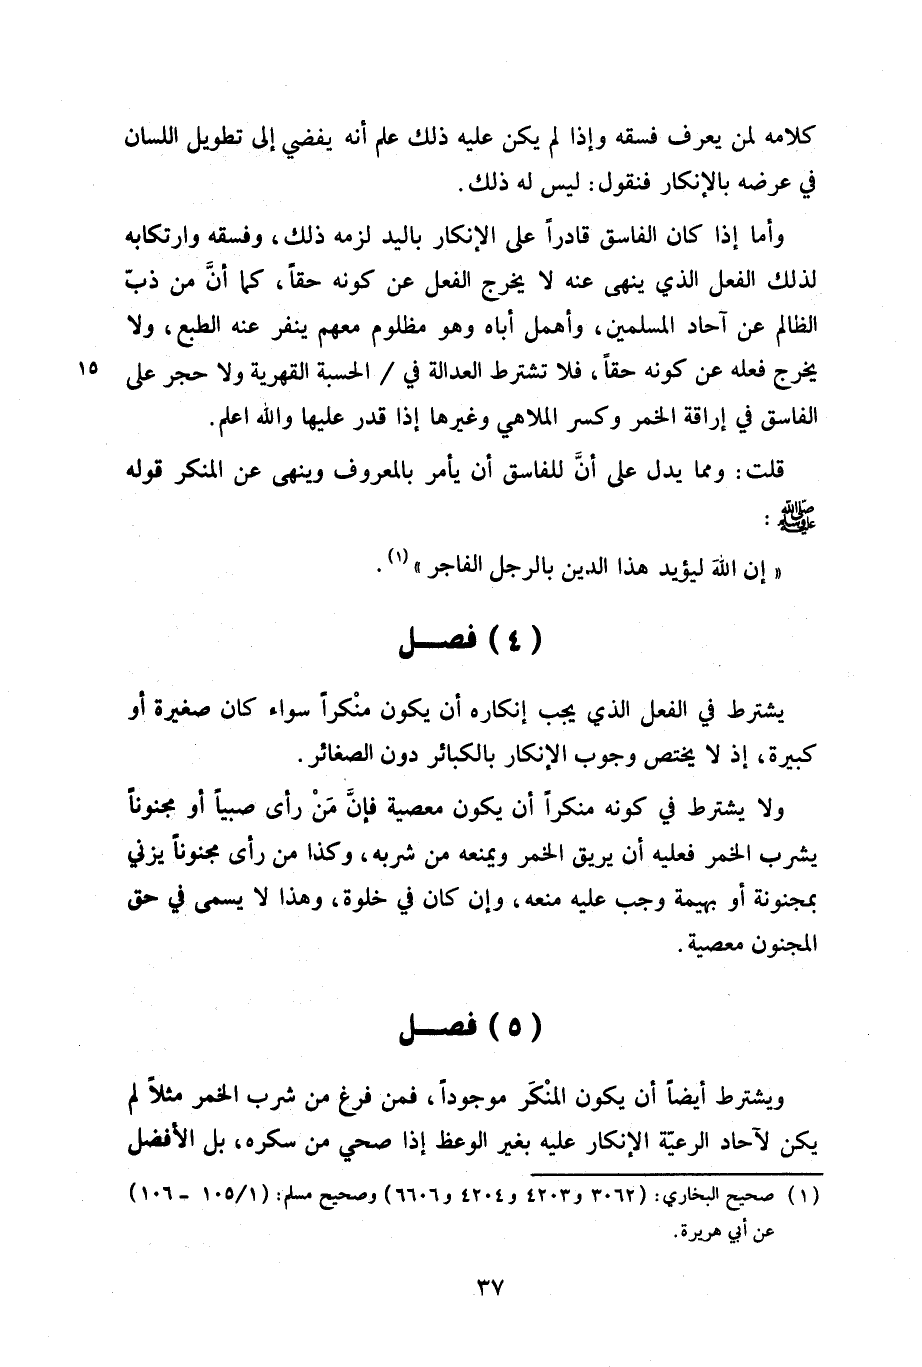 كلامه لمن يعرف فسقه وإذا لم يكن عليه ذلك علم أنه يفضي إلى تطويل اللسان
في عرضه بالإنكار فنقول: ليس له ذلك.
وأما إذا كان الفاسق قادراً على الإنكار باليد لزمه ذلك، وفسقه وارتكابه
لذلك الفعل الذي ينهى عنه لا يخرج الفعل عن كونه حقاً، كما أنَّ من ذبّ
الظالم عن آحاد المسلمين، وأهمل أباه وهو مظلوم معهم ينفر عنه الطبع، ولا
يخرج فعله عن كونه حقاً، فلا تشترط العدالة في / الحسبة القهرية ولا حجر على ١٥
الفاسق في إراقة الخمر وكسر الملاهي وغيرها إذا قدر عليها والله اعلم.
قلت: ومما يدل على أنَّ للفاسق أن يأمر بالمعروف وينهى عن المنكر قوله
ﷺ :
« إن اللهَ ليؤيد هذا الدين بالرجل الفاجر »(١).
( ٤ ) فصـــل
يشترط في الفعل الذي يجب إنكاره أن يكون منْكراً سواء كان صغيرة أو
كبيرة، إذ لا يختص وجوب الإنكار بالكبائر دون الصغائر.
ولا يشترط في كونه منكراً أن يكون معصية فإنَّ مَنْ رأى صبياً أو مجنوناً
يشرب الخمر فعليه أن يريق الخمر ويمنعه من شربه، وكذا من رأى مجنوناً يزني
بمجنونة أو بهيمة وجب عليه منعه، وإن كان في خلوة، وهذا لا يسمى في حق
المجنون معصية.
( ٥ ) فصـــل
ويشترط أيضاً أن يكون المنْكَر موجوداً، فمن فرغ من شرب الخمر مثلاً لم
يكن لآحاد الرعيّة الإنكار عليه بغير الوعظ إذا صحي من سكره، بل الأفضل
(١) صحيح البخاري: (٣٠٦٢ و٤٢٠٣ و٤٢٠٤ و٦٦٠٦) وصحيح مسلم: (١٠٥/١ - ١٠٦)
عن أبي هريرة.
٣٧